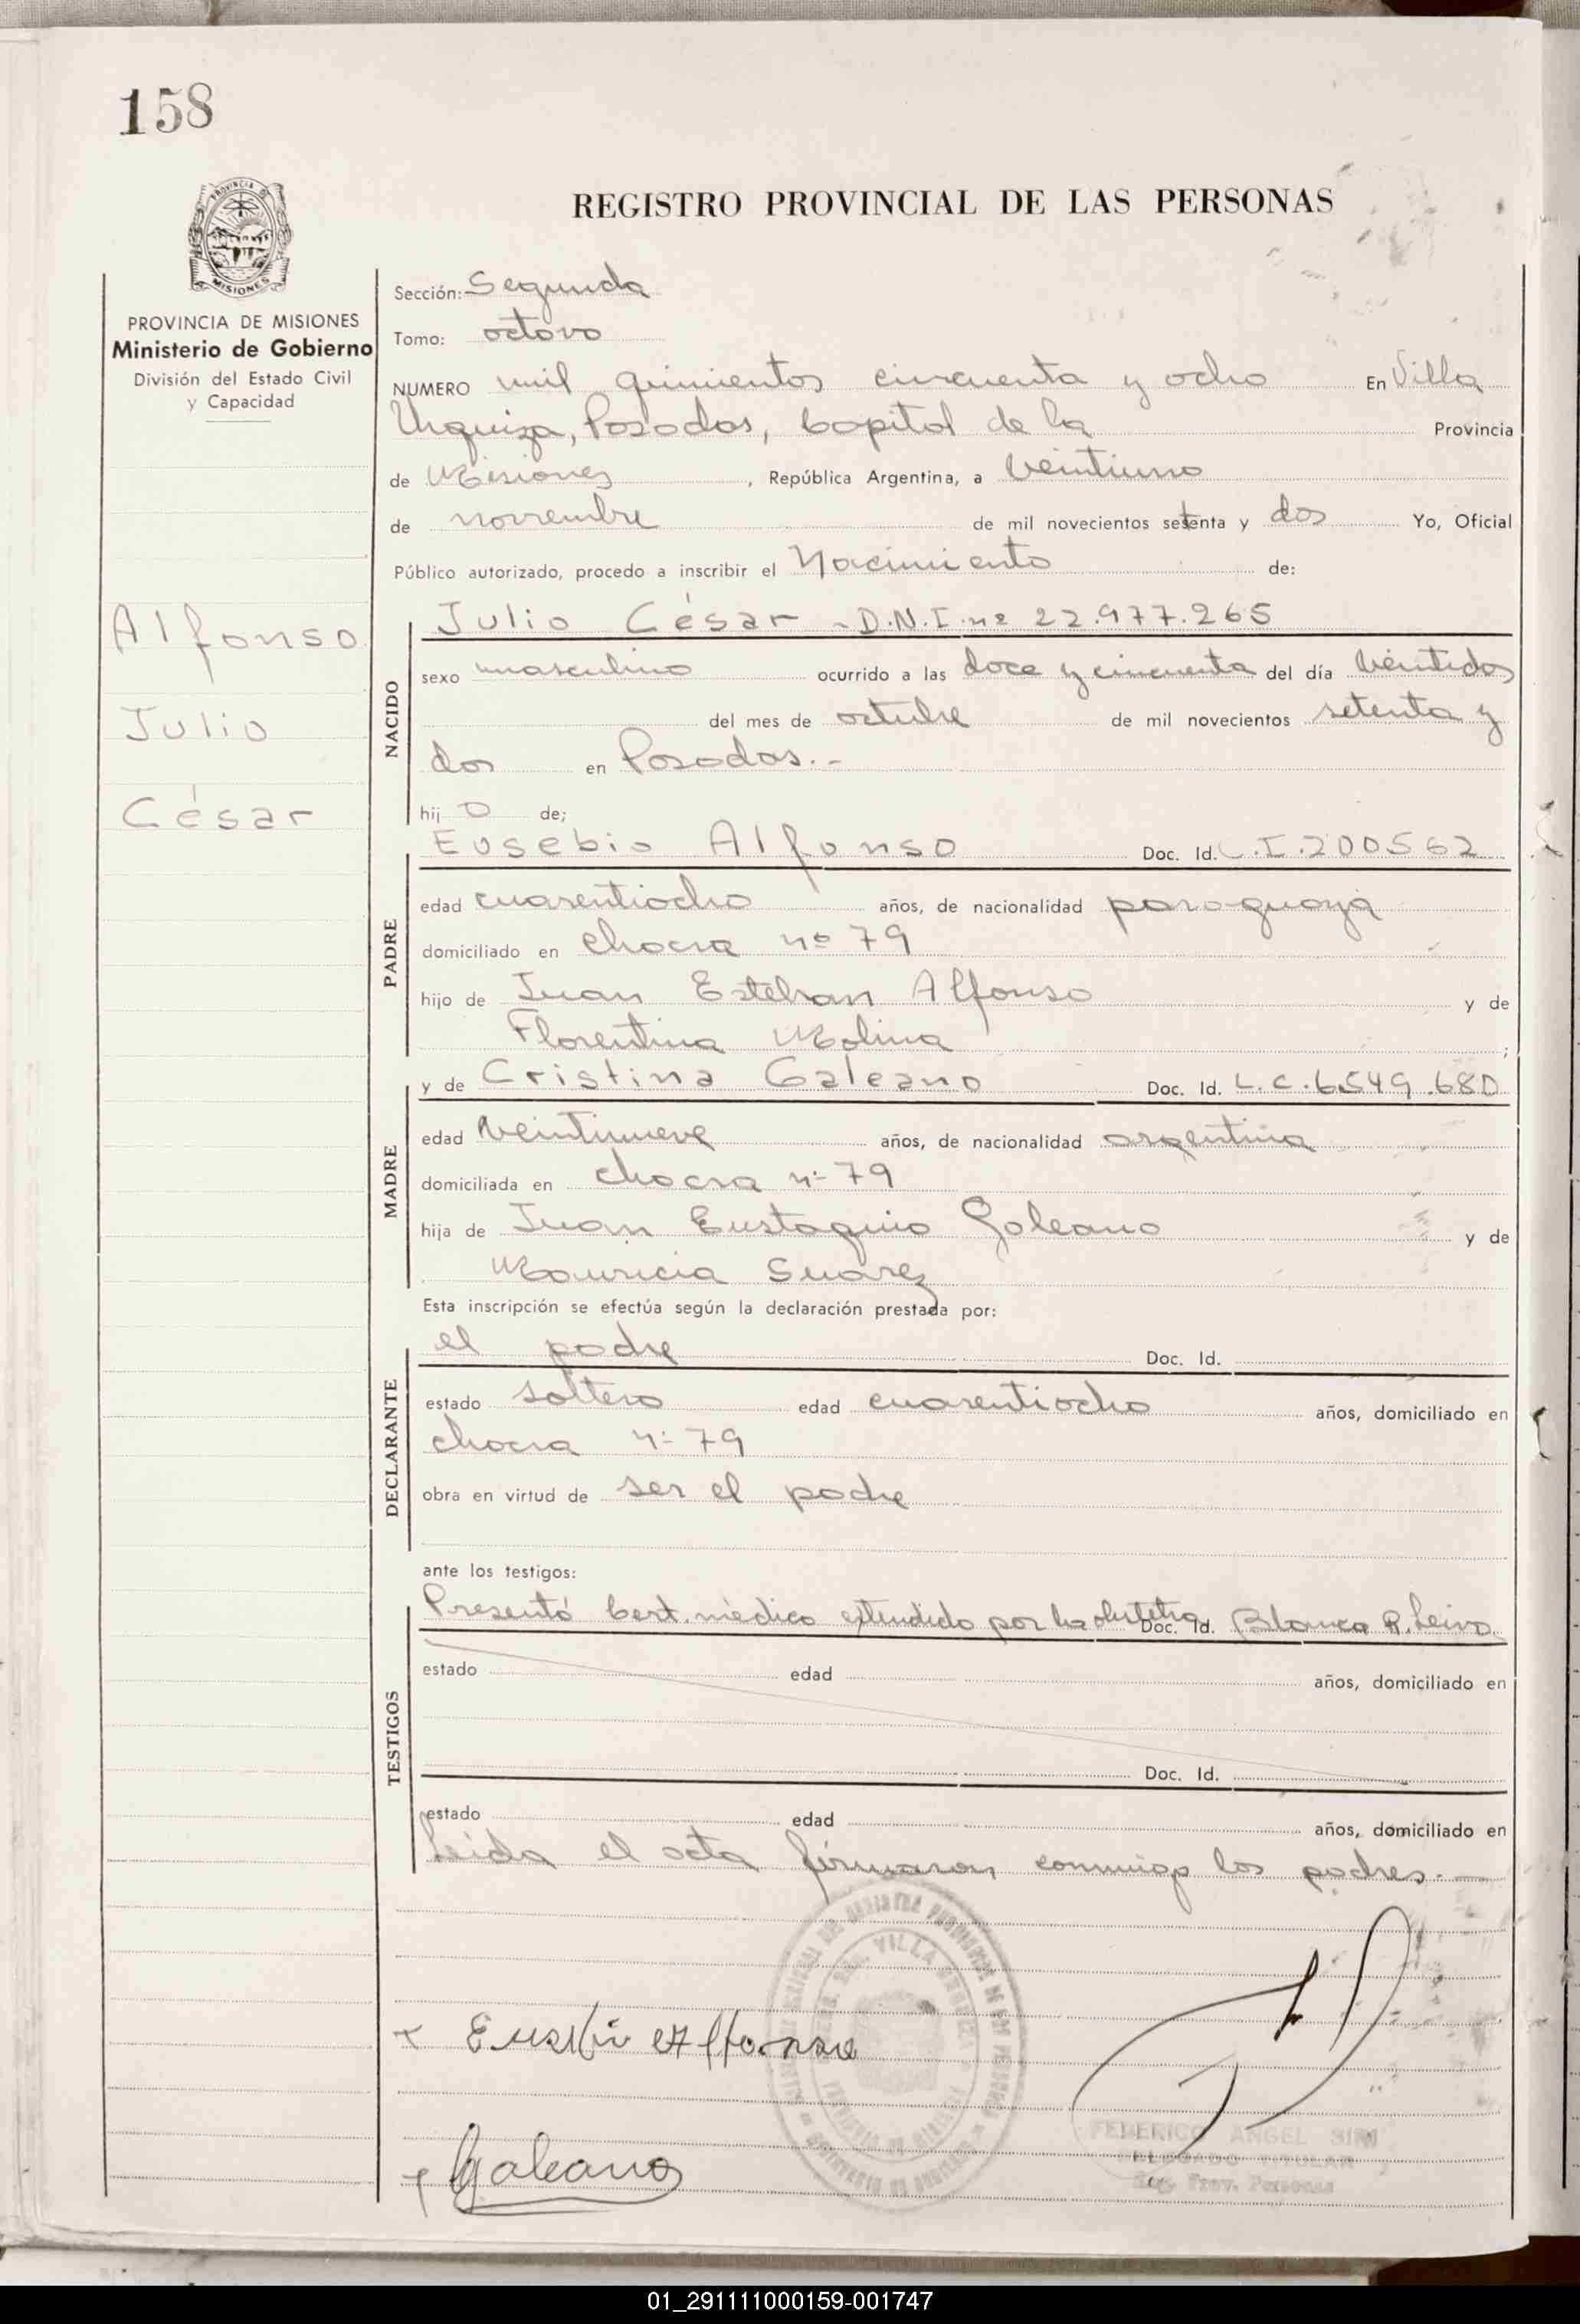 158
PROVINCIA DE MISIONES
PROVINCIA DE MISIONES
Ministerio de Gobierno
División del Estado Civil
y Capacidad
Alfonso
Julio
César
REGISTRO PROVINCIAL DE LAS PERSONAS
Sección: Segunda
Tomo: octavo
NUMERO mil quinientos cincuenta y ocho En Villa
Urquiza, Posadas, Capital de la Provincia
de Misiones, República Argentina, a veintiuno
de noviembre de mil novecientos setenta y dos Yo, Oficial
Público autorizado, procedo a inscribir el Nacimiento de:
Julio César - D.N.I. nº 22.977.265
NACIDO
sexo masculino ocurrido a las doce y cincuenta del día veintidos
del mes de octubre de mil novecientos setenta y
dos en Posadas.-
hij o de;
PADRE
Eusebio Alfonso Doc. Id. C.I. 200562
edad cuarentiocho años, de nacionalidad paraguaya
domiciliado en chacra nº 79
hijo de Juan Esteban Alfonso y de
Florentina Molina ;
MADRE
y de Cristina Galeano Doc. Id. L.C. 6.549.680
edad veintinueve años, de nacionalidad argentina
domiciliada en chacra nº 79
hija de Juan Eustaquio Galeano y de
Mauricia Suarez
Esta inscripción se efectúa según la declaración prestada por:
DECLARANTE
el padre Doc. Id.
estado soltero edad cuarentiocho años, domiciliado en
chacra nº 79
obra en virtud de ser el padre
ante los testigos:
TESTIGOS
Presentó Cert. médico extendido por la obstetra Doc. Id. Blanca R. Leiva
estado edad años, domiciliado en
Doc. Id.
estado edad años, domiciliado en
Leida el acta firmaron conmigo los padres.-
VILLA URQUIZA
Eusebio Alfonso
Galeano
FEDERICO ANGEL SIRI
DELEGADO TITULAR
Reg. Prov. Personas
01_291111000159-001747